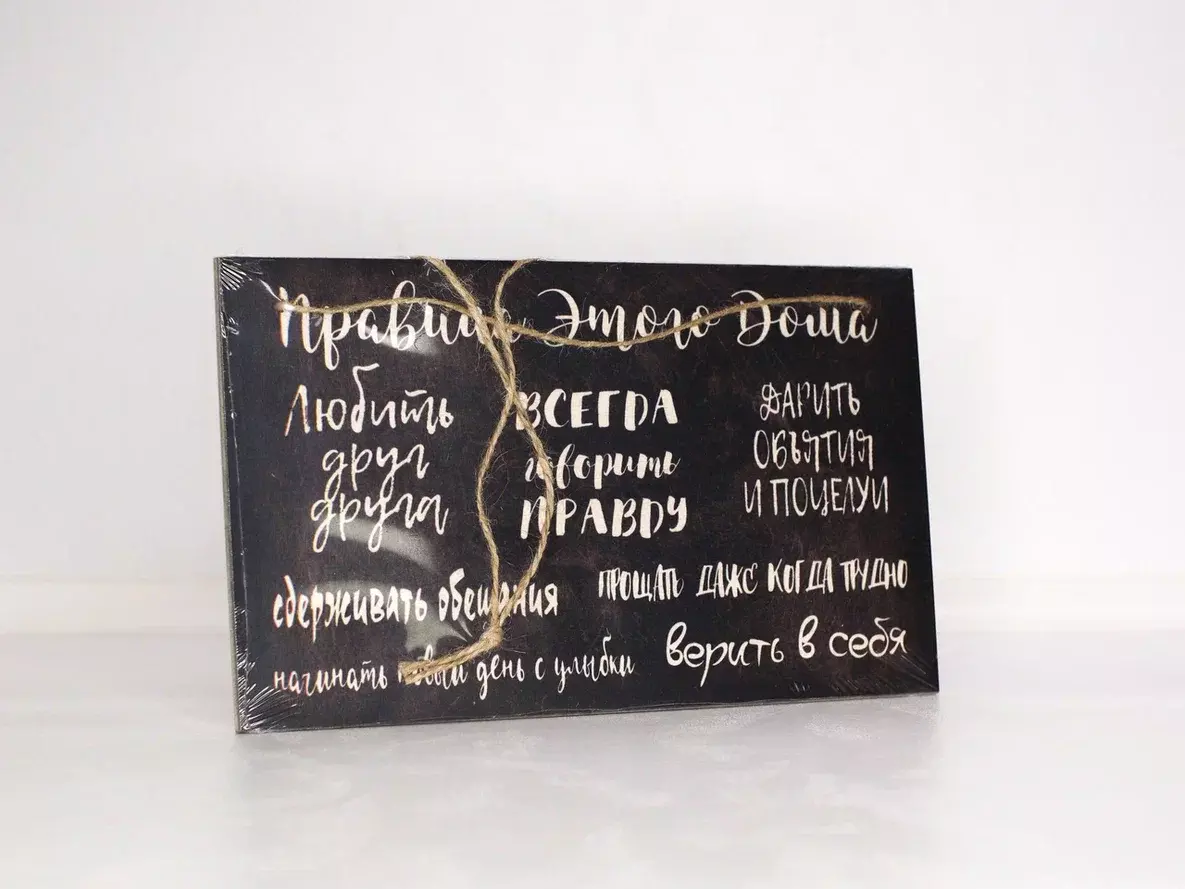 Правила Этого Дома
Любить
друг
друга
ВСЕГДА
говорить
ПРАВДУ
ДАРИТЬ
ОБЪЯТИЯ
И ПОЦЕЛУИ
сдерживать обещания
ПРОЩАТЬ ДАЖЕ КОГДА ТРУДНО
начинать новый день с улыбки
верить в себя